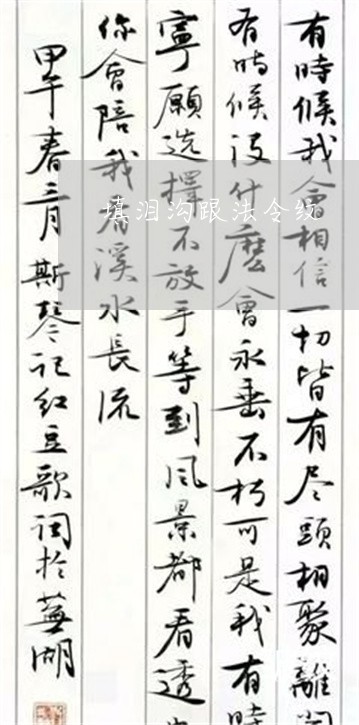 有時候我會相信一切皆有尽頭相聚離開
有時候没什麽會永垂不朽可是我有時
寧願选擇不放手等到风景都看透
你會陪我看溪水長流
甲午春三月斯琴记红豆歌词於蕪湖
填泪沟跟法令纹